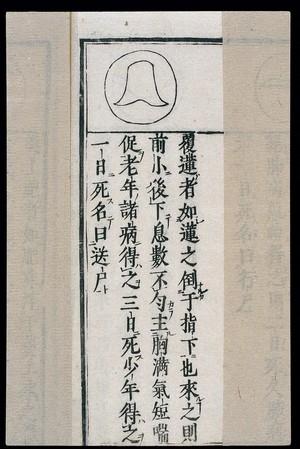 覆蓮者如蓮之倒于指下也來之則
前小後下息數不勻主胸滿氣短喘
促老年諸病得之三日死少年得之
一日死名曰送尸